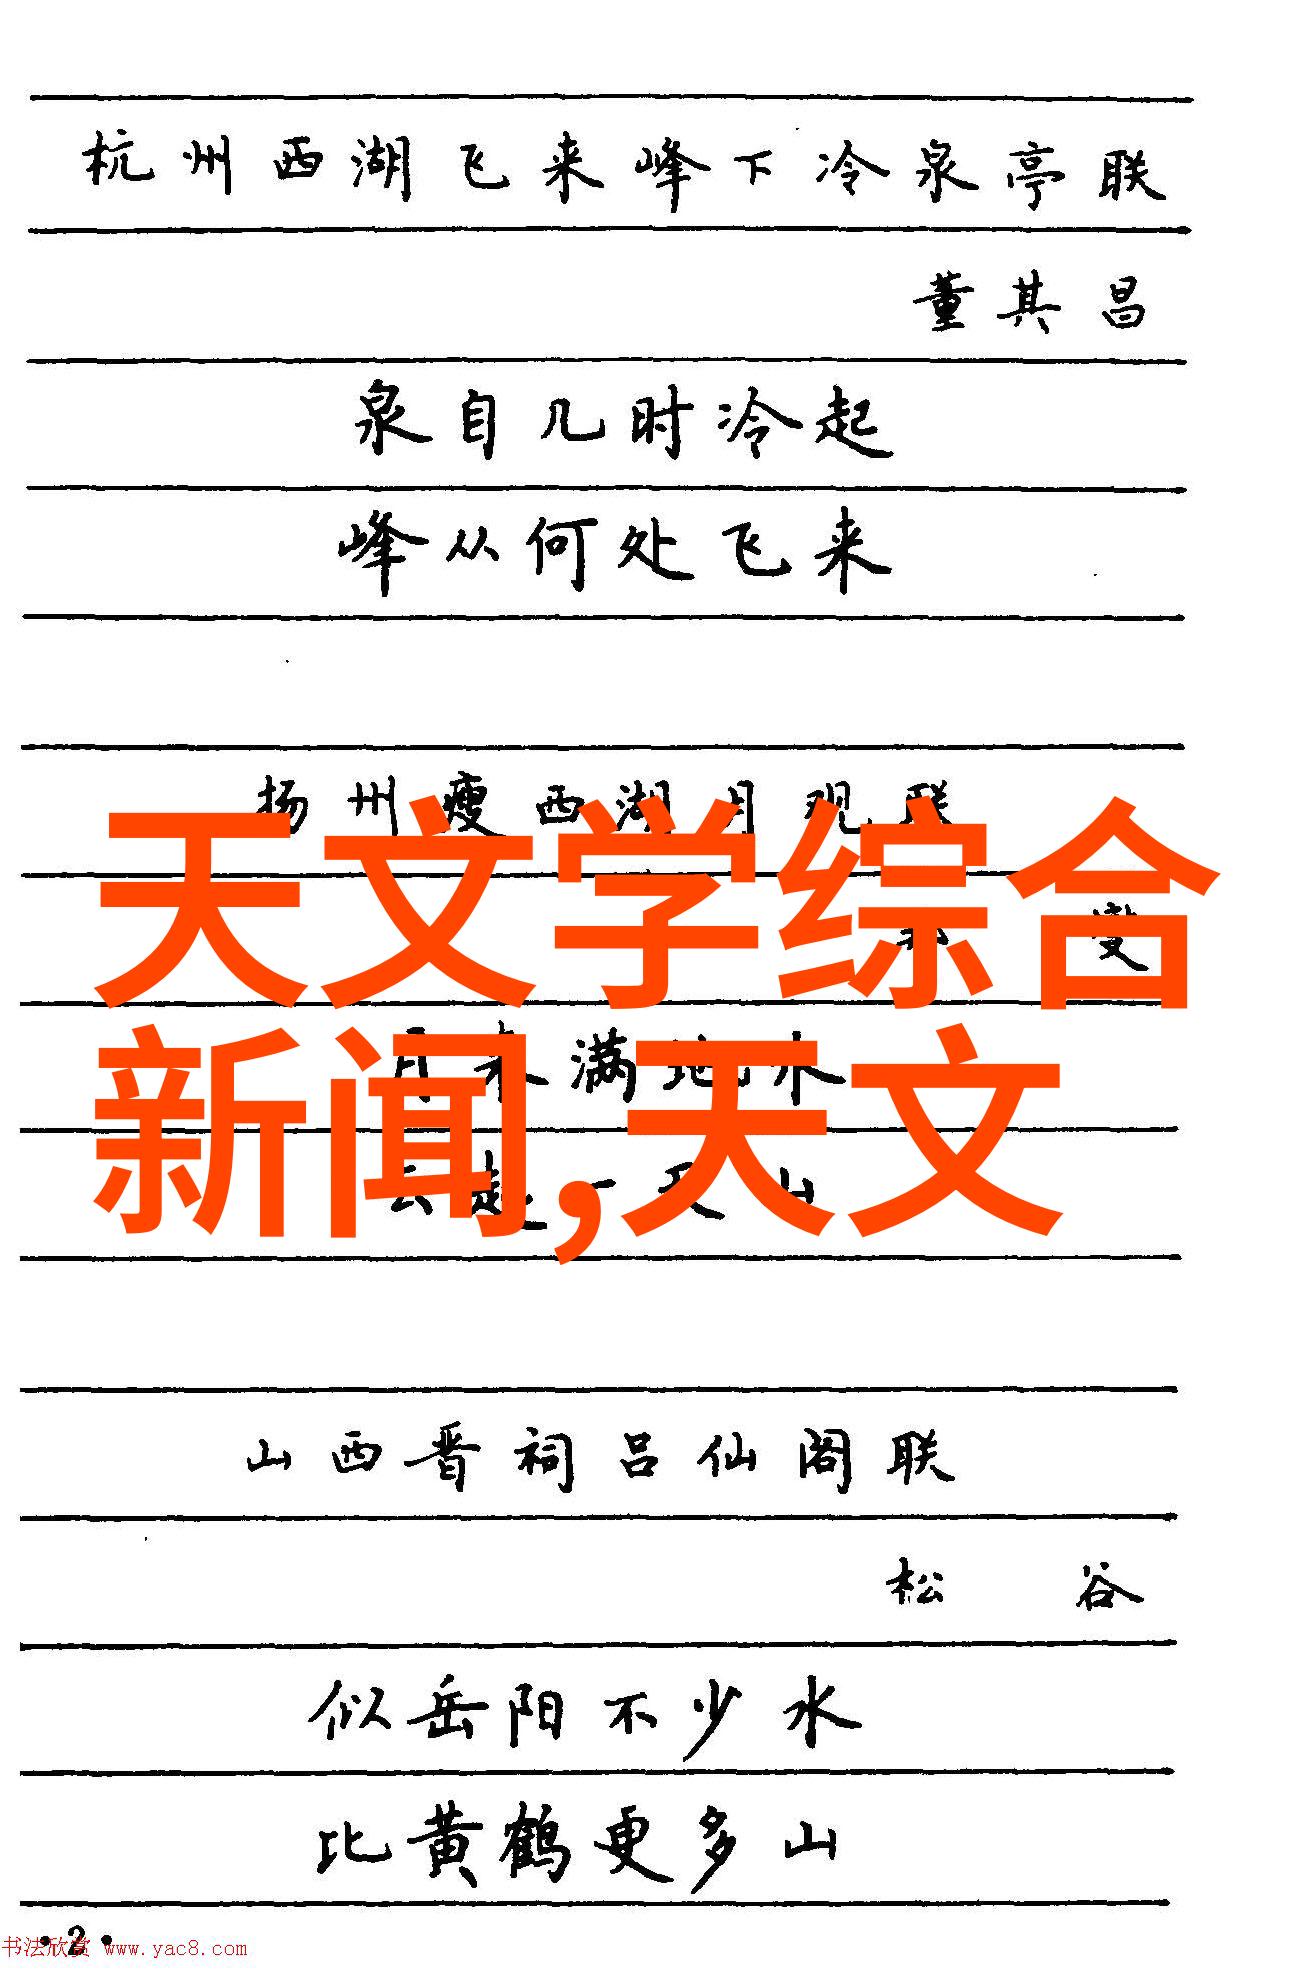 杭州西湖飞来峰下冷泉亭联
董其昌
泉自几时冷起
峰从何处飞来
扬州瘦西湖月观联
燮
天文学综合
月来满地水
云起一天山
新闻,天文
山西晋祠吕仙阁联
松谷
似岳阳不少水
比黄鹤更多山
·2·
书法欣赏 www.yac8.com